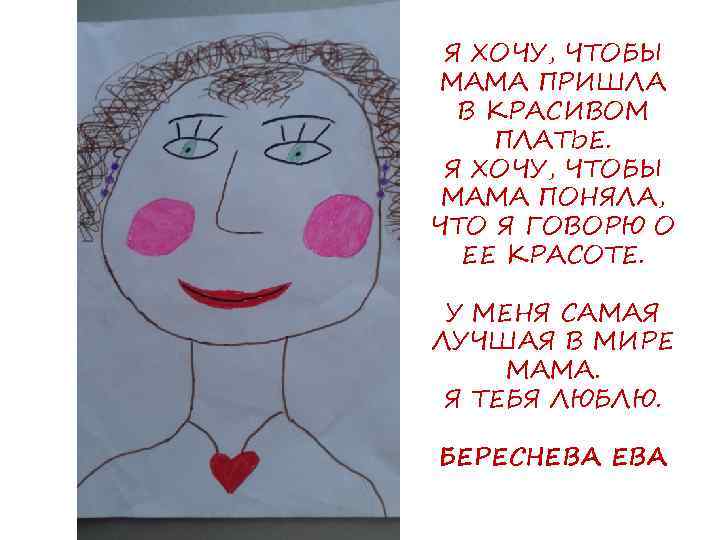 Я ХОЧУ, ЧТОБЫ
МАМА ПРИШЛА
В КРАСИВОМ
ПЛАТЬЕ.
Я ХОЧУ, ЧТОБЫ
МАМА ПОНЯЛА,
ЧТО Я ГОВОРЮ О
ЕЕ КРАСОТЕ.
У МЕНЯ САМАЯ
ЛУЧШАЯ В МИРЕ
МАМА.
Я ТЕБЯ ЛЮБЛЮ.
БЕРЕСНЕВА ЕВА